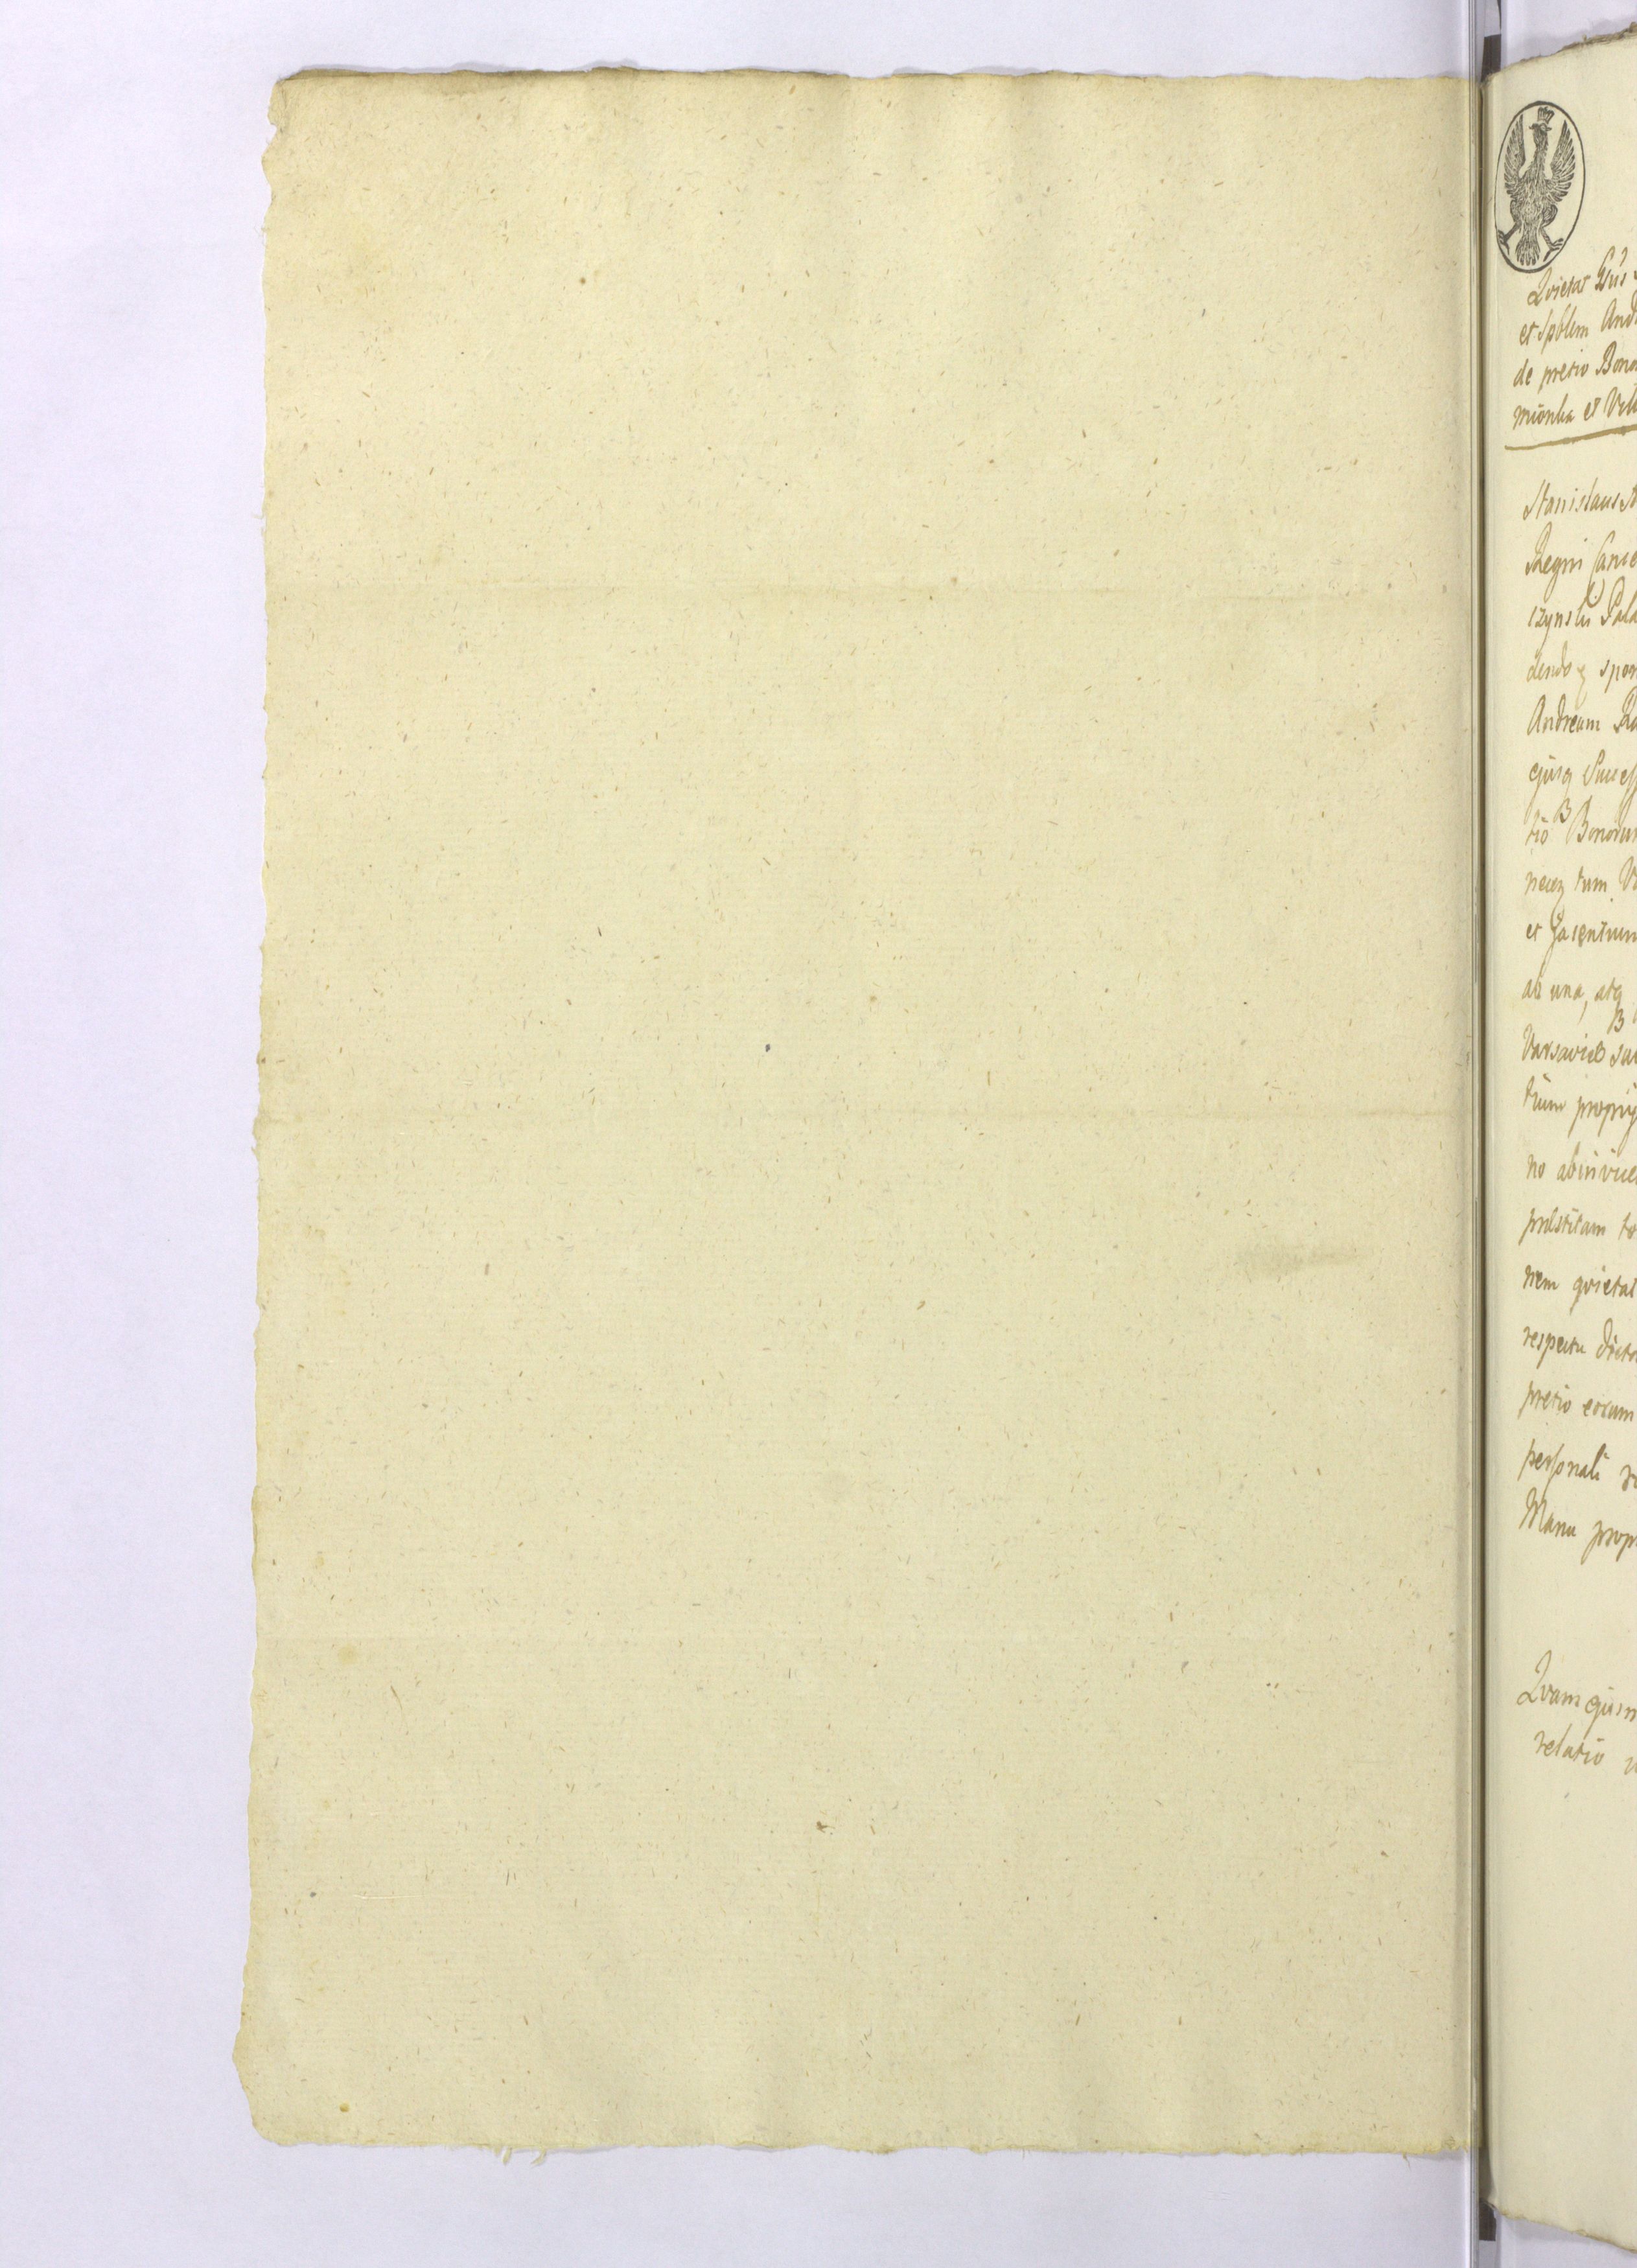 Qvietat Gsus
et Spblem And
de pretio Bono
mionka et Vil
Stanislaus A
Regni Cance
czynski Pala
dendo q spon
Andream Ra
ejusq Success
tio Bonorum
necq tum V
et Jacentium
ab una, atq
Varsaviae sub
tium proprijs
no abinvice
praestitam to
nem qvietat
respectu dicto
pretio eorum
personali re
Manu prop
Qvam quam
relatio